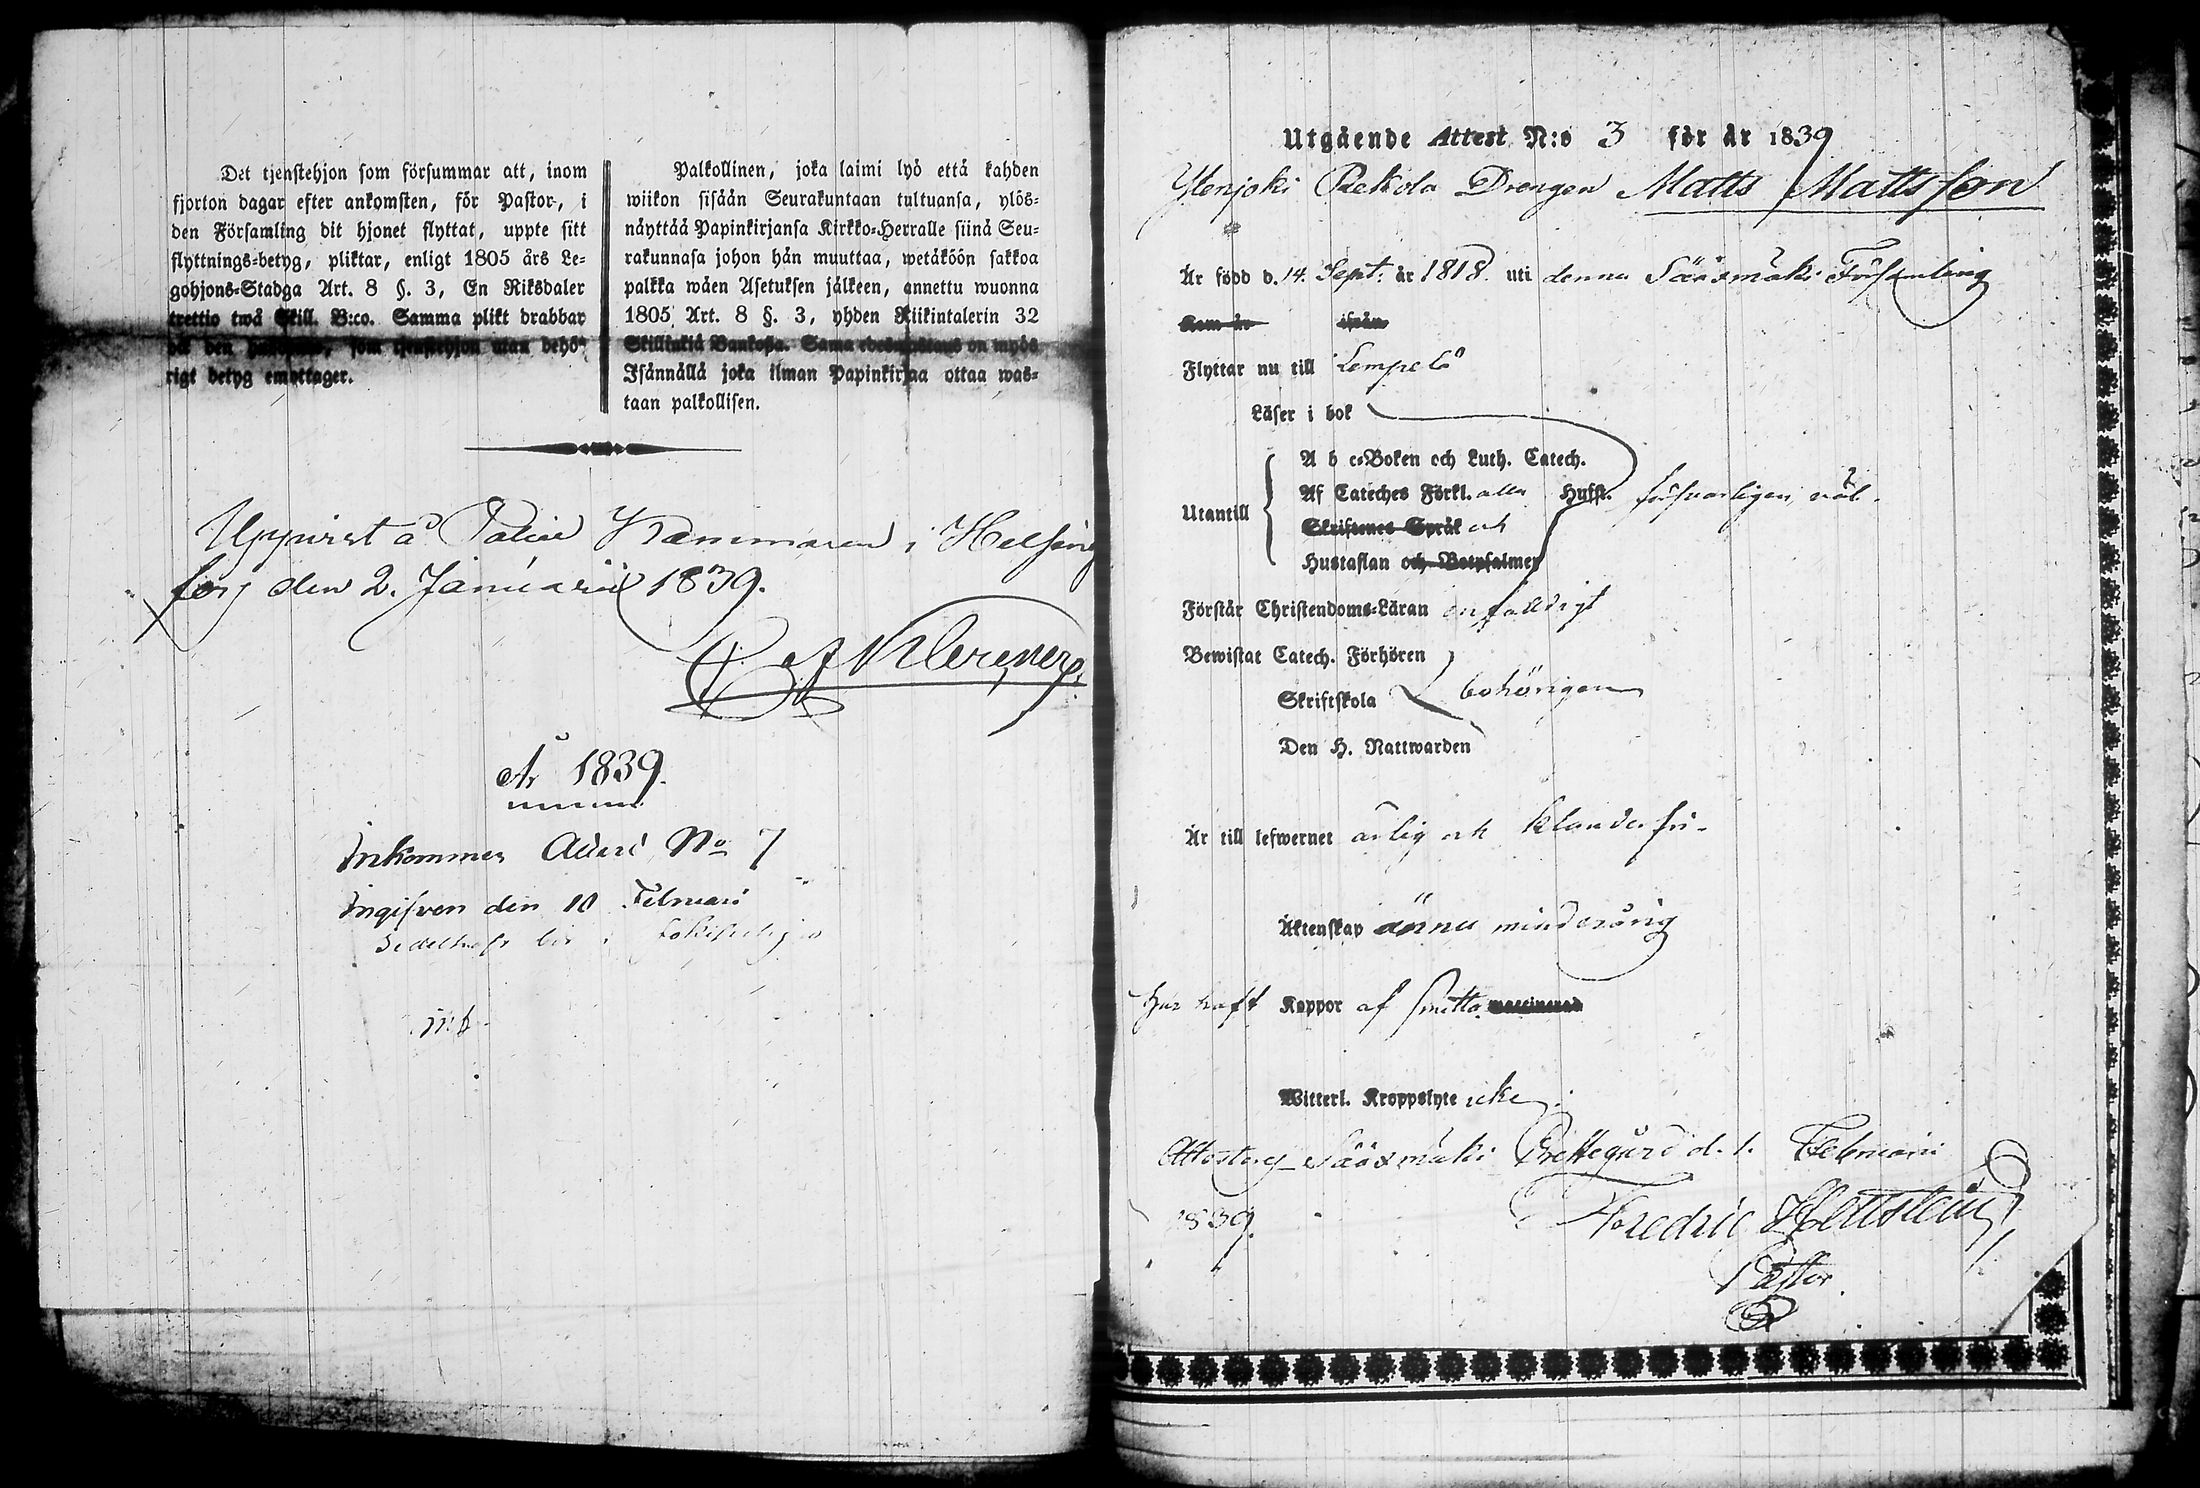 Det tjenstehjon som försummar att, inom
fjorton dagar efter ankomsten, för Pastor, i
den Församling dit hjonet flyttat, uppte sitt
flyttnings-betyg, pliktar, enligt 1805 års Le-
gohjons-Stadga Art. 8 §. 3, En Riksdaler
trettio twå Skill. B:co. Samma plikt drabbar
den som tjenstehjon utan behö-
rigt betyg emottager.
Palkollinen, joka laimi lyö että kahden
wiikon sisään Seurakuntaan tultuansa, ylös-
näyttää Papinkirjansa Kirkko-Herralle siinä Seu-
rakunnasa johon hän muuttaa, wetäköön sakkoa
palkka wäen Asetuksen jälkeen, annettu wuonna
1805 Art. 8 §. 3, yhden Riikintalerin 32
Skillinkiä Bankosa. Sama on myös
Isännällä joka ilman Papinkirjaa ottaa was-
taan palkollisen.
Uppvist å Police Kammaren i Helsing
fors den 2. Januarii 1839.
År 1839.
Inkommen Attest No 7
Ingifven den 10 Februari
Utgående Attest N:o 3 för år 1839
Ylenjoki Pekola Drengen Matts Mattsson
Är född d. 14. Sept. år 1818. uti denna Sääxmäki Församling
Kom år ifrån
Flyttar nu till Lempelö
Läser i bok
A b c-Boken och Luth. Catech.
Utantill Af Cateches Förkl. alla Hufst. försvarligen, väl.
Skriftenes Språk och
Hustaflan och Botpsalmer
Förstår Christendoms-Läran enfaldigt
Bewistat Catech. Förhören
Skriftskola behörigen
Den H. Nattwarden
Är till lefwernet ärlig och klanderfri.
Äktenskap ännu minderårig
har haft Koppor af smitta. waccinerad
Witterl. Kroppslyte icke
Attesterej Sääxmäki Prestegård d. 1. Februarii
1839.
Fredric
Pastor.